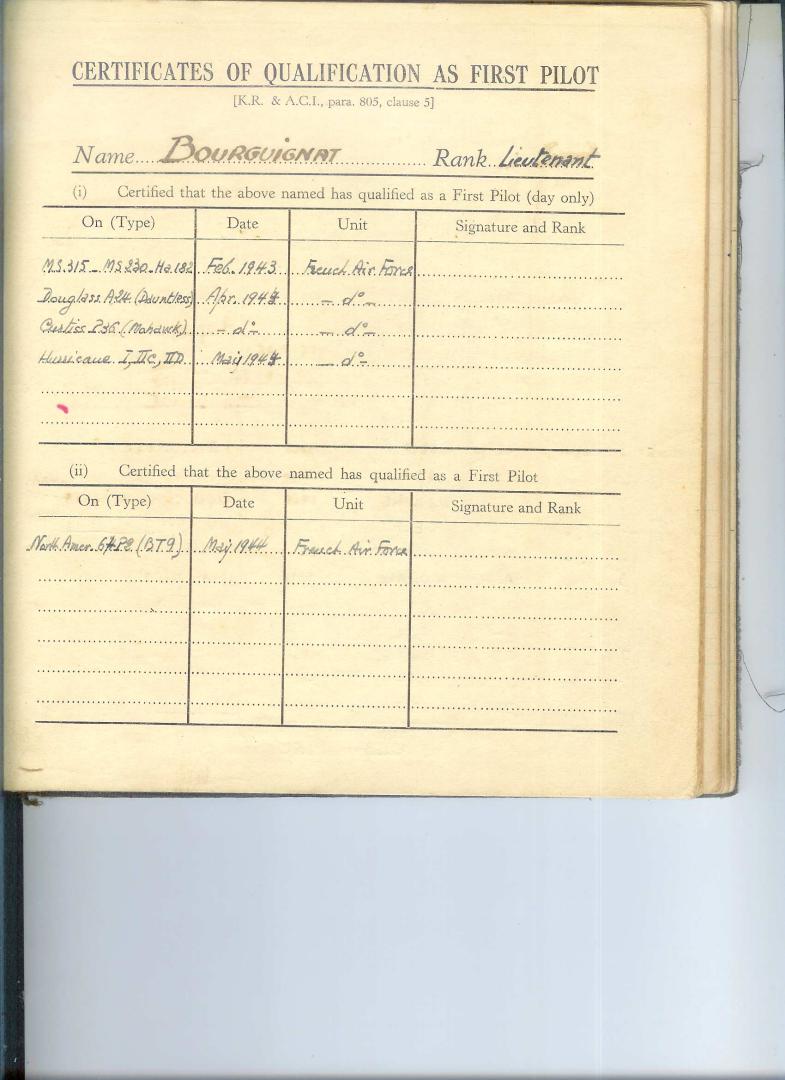 CERTIFICATES OF QUALIFICATION AS FIRST PILOT
[K.R. & A.C.I., para. 805, clause 5]
Name BOURGUIGNAT Rank Lieutenant
(i) Certified that the above named has qualified as a First Pilot (day only)
On (Type) Date Unit Signature and Rank
M.S.315 - MS 230 - Ha.182 Feb. 1943 French Air Force
Douglass A24 (Dauntless) Apr. 1944 - d° -
Curtiss P36 (Mohawk) - d° - d° -
Hurricane I, IIC, IID May 1944 - d° -
(ii) Certified that the above named has qualified as a First Pilot
On (Type) Date Unit Signature and Rank
North Amer. (BT9) May 1944 French Air Force